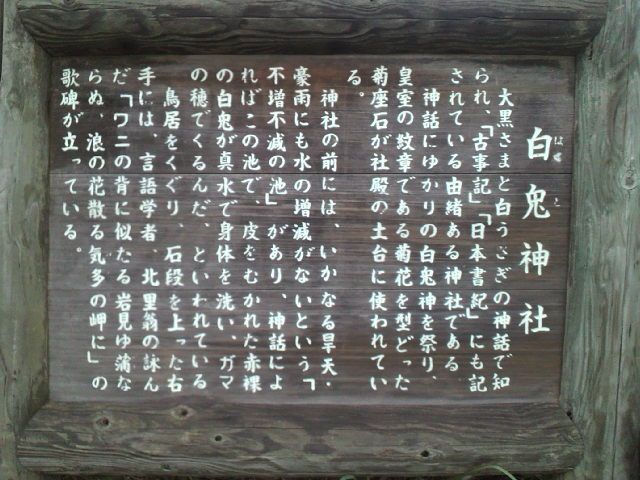 白兎神社
はくと
大黒さまと白うさぎの神話で知
られ、「古事記」「日本書紀」にも記
されている由緒ある神社である
神話にゆかりの白兎神を祭り、
皇室の紋章である菊花を型どった
菊座石が社殿の土台に使われてい
る。
神社の前には、いかなる旱天・
豪雨にも水の増減がないという「
不増不滅の池」があり、神話によ
ればこの池で、皮をむかれた赤裸
の白兎が真水で身体を洗い、ガマ
の穂でくるんだ、といわれている
鳥居をくぐり、石段を上った右
手には、言語学者、北里翁の詠ん
だ「ワニの背に似たる岩見ゆ蒲な
らぬ、浪の花散る気多の岬に」の
歌碑が立っている。